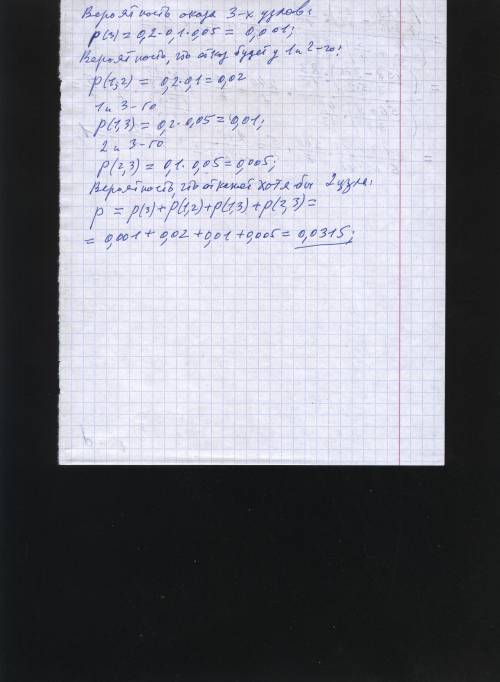 Вероятность отказа 3-х узлов:
P(3) = 0,2·0,1·0,05 = 0,001;
Вероятность, что отказ будет у 1 и 2-го:
P(1,2) = 0,2·0,1 = 0,02
1 и 3-го
P(1,3) = 0,2·0,05 = 0,01;
2 и 3-го
P(2,3) = 0,1·0,05 = 0,005;
Вероятность, что откажет хотя бы 2 узла:
P = P(3) + P(1,2) + P(1,3) + P(2,3) =
= 0,001 + 0,02 + 0,01 + 0,005 = 0,0315;